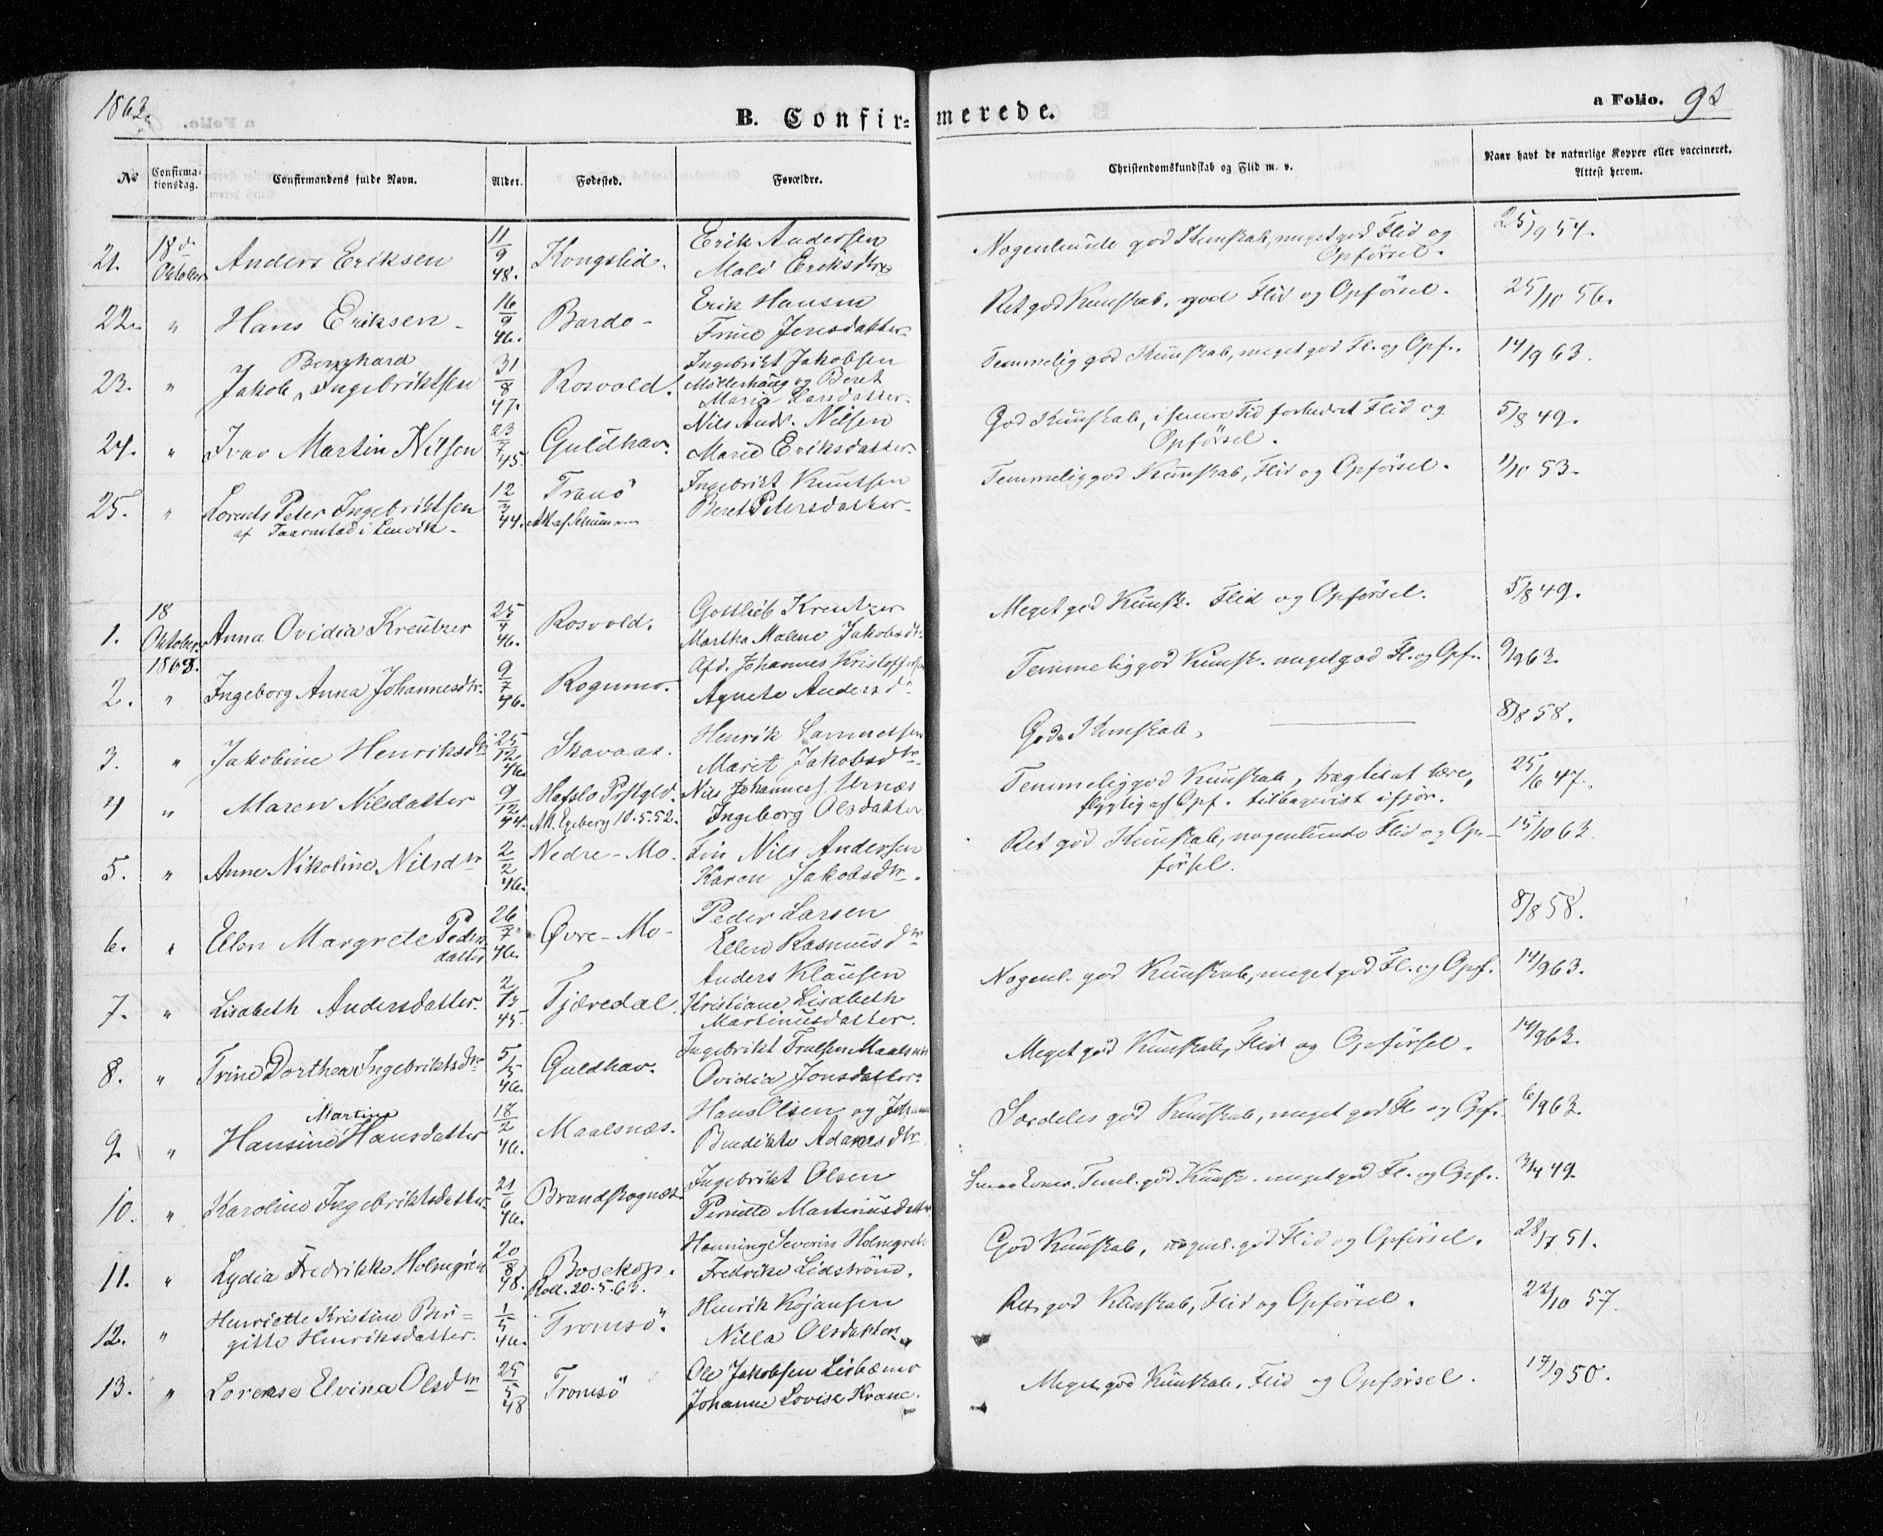 1863.
B. Confirmerede.
a Folio. 98
No
Confirmationsdag.
Confirmandens fulde Navn.
Alder.
Fødested.
Forældre.
Christendomskundskab og Flid m. v.
Naar havt de naturlige Kopper eller vaccineret. Attest herom.
21. 18de Oktober Anders Eriksen 11/9 48. Kongslid. Erik Andersen Nogenlunde god Kunskab, meget god Flid og 25/9 54.
Mali Eriksdtr Opførsel.
22. " Hans Eriksen 16/9 46. Bardo Erik Hansen Ret god Kunskab. god Flid og Opførsel. 25/10 56.
Trine Jensdatter
Bernhard
23. " Jakob Ingebriktsen 31/8 47. Rosvold. Ingebrikt Jakobsen Temmelig god Kunskab, meget god Fl. og Opf. 14/9 63.
Møllerhaug og Beret
Maria Larsdatter
24. " Ivar Martin Nilsen 23/7 45. Guldhav. Nils Andr. Nilsen God Kunskab, i senere Tid forbedret Flid og 5/8 49.
Marie Eriksdatter Opførsel.
25. " Lorents Peter Ingebriktsen 12/3 44. Tranö Ingebrikt Knutsen Temmelig god Kunskab, Flid og Opførsel. 1/10 53.
af Taarnstad i Lenvik Att. af Beret Petersdatter
1. 18 Oktober 1863. Anna Ovidia Kreutzer 25/4 46. Rosvold. Gottlieb Kreutzer Meget god Kunsk. Flid og Opførsel. 5/8 49.
Martha Malene Jakobsdtr
2. " Ingeborg Anna Johannesdtr. 9/7 46. Rognmo. Afd. Johannes Kristoffersen Temmelig god Kunsk. meget god Fl. og Opf. 9/9 63.
Agnete Andersd
3. " Jakobine Henriksdtr 25/12 46. Skavaas. Henrik God Kunskab, 8/8 58.
Maret Jakobsdtr
4 " Maren Nilsdatter 9/12 44. Hafslo Prstgld. Nils Johannes. Urnæs Temmelig god Kunskab, træg til at lære, 25/6 47.
Att. Egeberg 10.5.52. Ingeborg Olsdatter flygtig af Opf. tilbagevist ifjor.
5. " Anne Nikoline Nilsdtr 2/2 46. Nedre-Mo. Fin Nils Andersen Ret god Kunskab, nogenlunde Flid og Op- 15/10 63.
Karen Jakobsdtr. førsel.
6. " Ellen Margrete Peders 26/7 46. Øvre-Mo Peder Larsen 8/8 58.
datter Ellen Rasmusdtr
7. " Lisabeth Andersdatter. 45. Tjæredal Anders Klausen Nogenl. god Kunskab, meget god Fl. og Opf. 14/9 63.
Kristiane Lisabeth
Martinusdatter.
8. " Trine Dorthea Ingebriktsdtr 5/5 46. Guldhav. Ingebrikt Trulsen Maalsnæs Meget god Kunskab, Flid og Opførsel. 14/9 63.
Ovidia Jonsdatter
Martine
9. " Hansine Hansdatter 18/2 46. Maalsnæs. Hans Olsen og Johanna Særdeles god Kunskab, meget god Fl og Opf. 6/9 63.
Benedikte Adamsdtr
10. " Karoline Ingebriktsdatter 21/6 46. Brandskognæs Ingebrikt Olsen Smaa Evner. Teml. god Kunsk. meget god Fl. og Opf. 3/4 49.
Pernille Martinusdatter
11. " Lydia Fredrikke Holmgrén 20/8 48. Bosekop. Henning Severin Holmgrén God Kunskab, nogenl. god Flid og Opførsel. 28/7 51.
Koll. 20.5.63. Fredrike Lidstrøm.
12. " Henriette Kristine Bir- 1/5 46. Tromsö. Henrik Kojansen Ret god Kunskab, Flid og Opførsel. 22/10 57.
gitte Henriksdatter. Nilla Olsdatter
13. " Lorense Elvina Olsdtr 25/5 48 Tromsö Ole Jakobsen Leibæmo Meget god Kunskab, Flid og Opførsel. 17/9 50.
Johanne Lovise Krane.